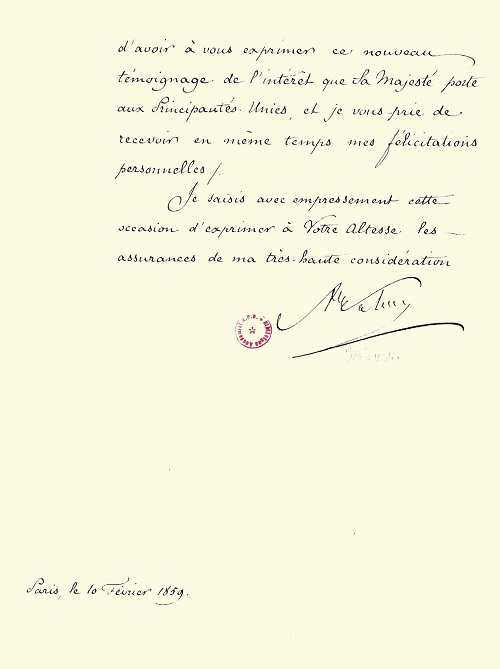 d'avoir à vous exprimer ce nouveau
témoignage de l'intérêt que Sa Majesté porte
aux Principautés-Unies, et je vous prie de
recevoir en même temps mes félicitations
personnelles/.
Je saisis avec empressement cette
occasion d'exprimer à Votre Altesse les
assurances de ma très-haute considération
Paris, le 10 Février 1859.